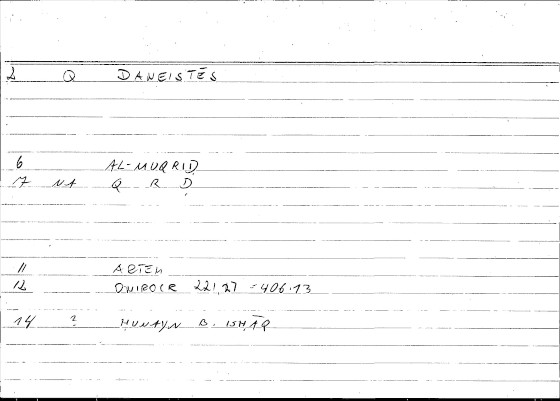 2 Q DANEISTĒS
6 AL-MUQRIḌ
7 NA Q R Ḍ
11 ARTEM
12 ONIROCR 221,27 - 406.13
14 ? ḤUNAYN B. ISḤĀQ